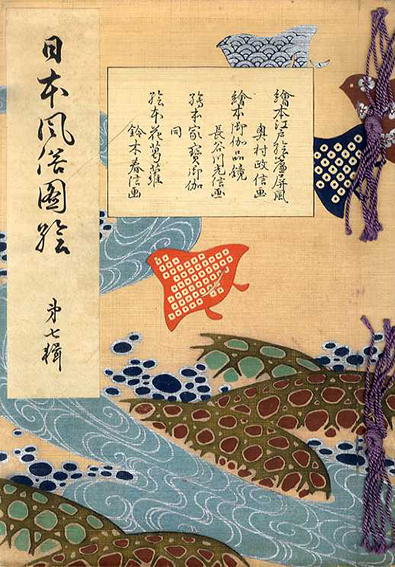 日本風俗圖絵
第七輯
繪本江戸絵簾屏風
奥村政信画
繪本御伽品鏡
長谷川光信画
絵本家寳御伽
同
絵本花葛蘿
鈴木春信画